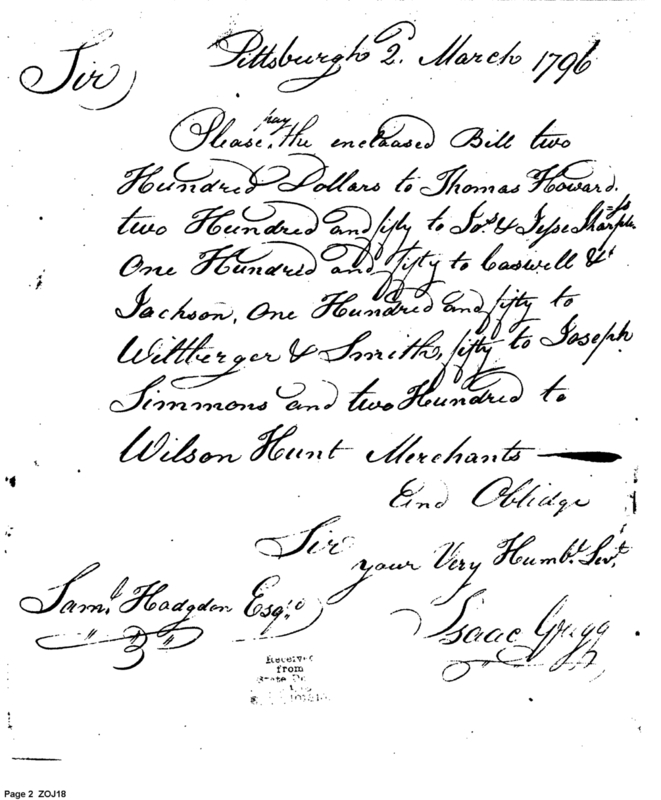 Pittsburgh 2. March 1796
Sir
pay
Please, the enclosed Bill two
Hundred Dollars to Thomas Howard.
two Hundred and fifty to Jos. & Jesse Sharples
One Hundred and fifty to Caswell &
Jackson, One Hundred and fifty to
Wiltberger & Smith, fifty to Joseph
Simmons and two Hundred to
Wilson Hunt Merchants —
And Oblidge
Sir
your Very Humbl. Servt.
Saml. Hodgdon Esqr.
Isaac Gregg
Received
from
State
Page 2 ZOJ18